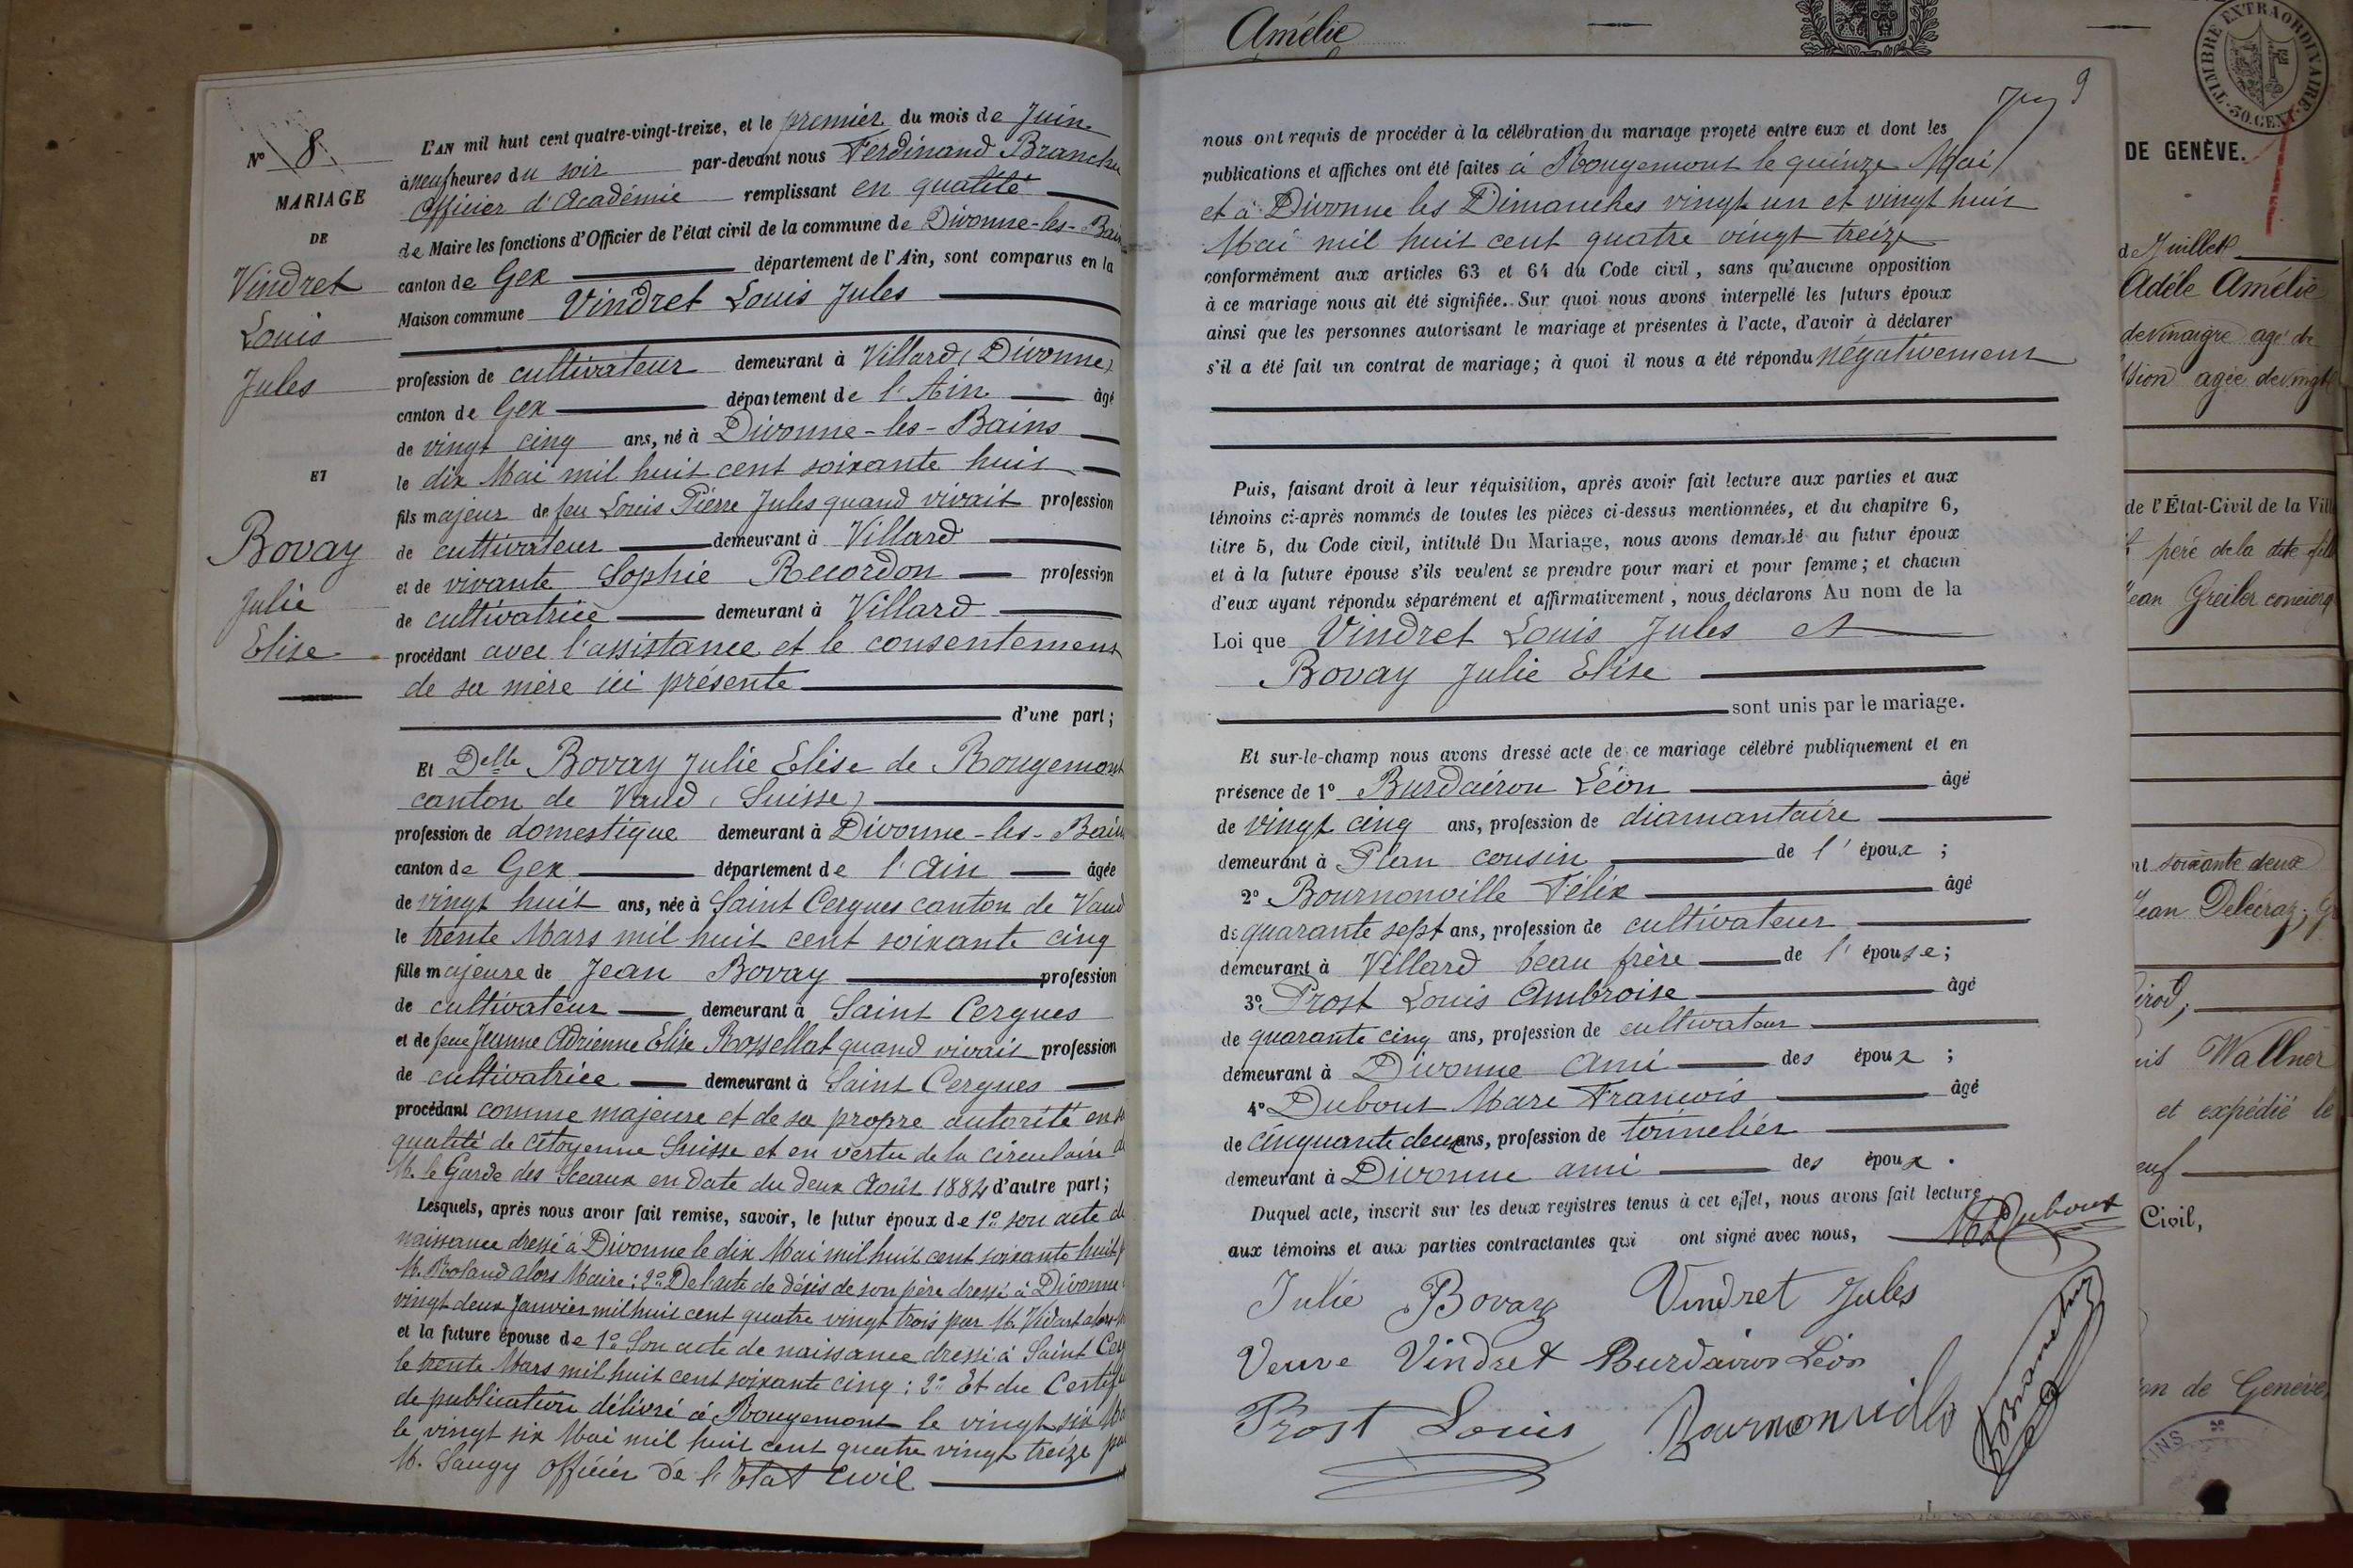 N° 8
MARIAGE
DE
Vindret
Louis
Jules
ET
Bovay
Julie
Elise
L'AN mil huit cent quatre-vingt-treize, et le premier du mois de Juin
à neuf heures du soir par-devant nous Ferdinand Branchu
Officier d'Académie remplissant en qualité
de Maire les fonctions d'Officier de l'état civil de la commune de Divonne-les-Bains
canton de Gex département de l'Ain, sont comparus en la
Maison commune Vindret Louis Jules
profession de cultivateur demeurant à Villard (Divonne)
canton de Gex département de l'Ain âgé
de vingt cinq ans, né à Divonne-les-Bains
le dix Mai mil huit cent soixante huit
fils majeur de feu Louis Pierre Jules quand vivait profession
de cultivateur demeurant à Villard
et de vivante Sophie Recordon profession
de cultivatrice demeurant à Villard
procédant avec l'assistance et le consentement
de sa mère ici présente
d'une part;
Et Delle Bovay Julie Elise de Rougemont
canton de Vaud (Suisse)
profession de domestique demeurant à Divonne-les-Bains
canton de Gex département de l'Ain âgée
de vingt huit ans, née à Saint Cergues canton de Vaud
le trente Mars mil huit cent soixante cinq
fille majeure de Jean Bovay profession
de cultivateur demeurant à Saint Cergues
et de feue Jeanne Adrienne Elise Rossellat quand vivait profession
de cultivatrice demeurant à Saint Cergues
procédant comme majeure et de sa propre autorité en sa
qualité de citoyenne Suisse et en vertu de la circulaire de
M. le Garde des Sceaux en date du deux Août 1884 d'autre part;
Lesquels, après nous avoir fait remise, savoir, le futur époux de 1° son acte de
naissance dressé à Divonne le dix Mai mil huit cent soixante huit p
M. Roland alors Maire; 2° De l'acte de décès de son père dressé à Divonne
vingt deux Janvier mil huit cent quatre vingt trois par M. Vidart alors
et la future épouse de 1° Son acte de naissance dressé à Saint Cer
le trente Mars mil huit cent soixante cinq; 2° Et du Certifi
de publication délivré à Rougemont le vingt six Ma
le vingt six Mai mil huit cent quatre vingt treize pa
M. Saugy officier de l'Etat Civil
9
nous ont requis de procéder à la célébration du mariage projeté entre eux et dont les
publications et affiches ont été faites à Rougemont le quinze Mai
et à Divonne les Dimanches vingt un et vingt huit
Mai mil huit cent quatre vingt treize
conformément aux articles 63 et 64 du Code civil, sans qu'aucune opposition
à ce mariage nous ait été signifiée. Sur quoi nous avons interpellé les futurs époux
ainsi que les personnes autorisant le mariage et présentes à l'acte, d'avoir à déclarer
s'il a été fait un contrat de mariage; à quoi il nous a été répondu négativement
Puis, faisant droit à leur réquisition, après avoir fait lecture aux parties et aux
témoins ci-après nommés de toutes les pièces ci-dessus mentionnées, et du chapitre 6,
titre 5, du Code civil, intitulé Du Mariage, nous avons demandé au futur époux
et à la future épouse s'ils veulent se prendre pour mari et pour femme; et chacun
d'eux ayant répondu séparément et affirmativement, nous déclarons Au nom de la
Loi que Vindret Louis Jules et
Bovay Julie Elise
sont unis par le mariage.
Et sur-le-champ nous avons dressé acte de ce mariage célébré publiquement et en
présence de 1° Burdairon Léon âgé
de vingt cinq ans, profession de diamantaire
demeurant à Plan cousin de l'époux;
2° Bournonville Félix âgé
de quarante sept ans, profession de cultivateur
demeurant à Villard beau frère de l'épouse;
3° Prost Louis Ambroise âgé
de quarante cinq ans, profession de cultivateur
demeurant à Divonne Ami des époux;
4° Dubout Marc François âgé
de cinquante deux ans, profession de tonnelier
demeurant à Divonne ami des époux.
Duquel acte, inscrit sur les deux registres tenus à cet effet, nous avons fait lecture
aux témoins et aux parties contractantes qui ont signé avec nous,
M Dubout
Julie Bovay Vindret Jules
Veuve Vindret Burdairon Léon
Prost Louis Bournonville
F Branchu
Amélie
TIMBRE EXTRAORDINAIRE
50. CENT.
DE GENÈVE.
de Juillet
Adèle Amélie
de vinaigre agé de
sion agée de vingt
de l'État-Civil de la Vill
père de la dite fille
ean Greiler concierg
nt soixante deux
ean Deléiraz; G
irod,
uis Wallner
et expédié le
euf
Civil,
on de Genève,